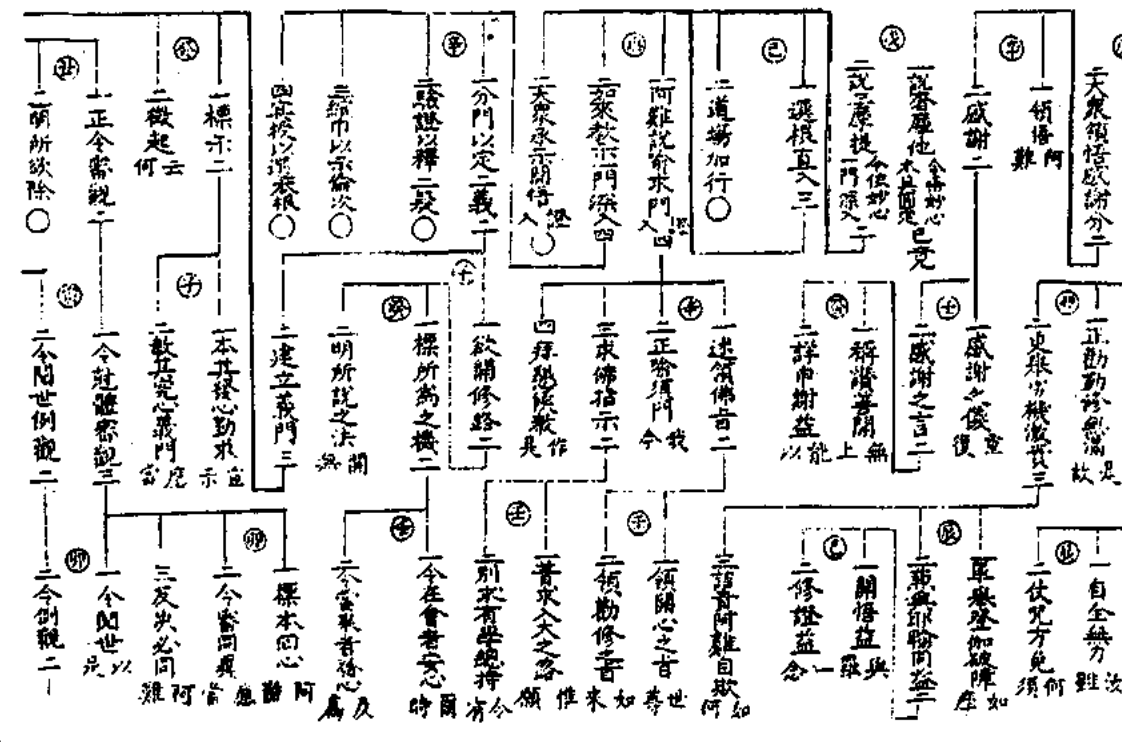 二大眾領悟感謝分二
一領悟
阿難
二感謝二
一說奢摩他
令悟妙心
本具圓定
已竟
二說三摩提
令依妙心
一門深入
二
一選根直入三
二道場加行
一阿難說喻求門
證入
四
二如來教示一門深入四
三大眾承示開悟
證入
一分門以定二義二
二驗證以釋二疑
三綰巾以示倫次
四冥授以選本根
一標示二
二徵起
云何
一正令審觀二
二明所欲除
一正勸勤修無漏
是故
二更舉劣機激責三
一感謝之儀
重復
二感謝之言二
一稱讚善開
無上
二詳申謝益
能以
一述領佛旨二
二正喻須門
我今
三求佛指示二
四拜懇候教
作是
一欲開修路二
一標所為之機二
二明所說之法
開無
二建立義門三
一本其發心勤求
宣示
二教其究心義門
應當
一令就體審觀三
二令問世例觀二
一自全無力
汝雖
二仗咒方免
何須
一單舉登伽破障
如摩
二兼與耶輸同益二
一開悟益
與羅
二修證益
一念
三詰責阿難自欺
如何
一領開心之旨
世尊
二領勸修之旨
如來
一普求入大之路
惟願
二別求有學總持
今有
一令在會者安心
爾時
二令當來者發心
及為
一標本因心
阿難
二今審同異
應當
三反決必同
阿難
一令閱世
以是
二令例觀二